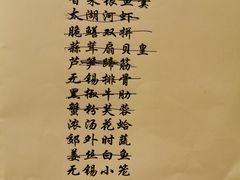 太湖河虾
脆鳝双拼
蒜茸扇贝皇
芦笋蹄筋
无锡排骨
黑椒牛肋
蟹粉芙蓉
浓汤花蛤
郊外时蔬
姜丝白鱼
无锡小笼